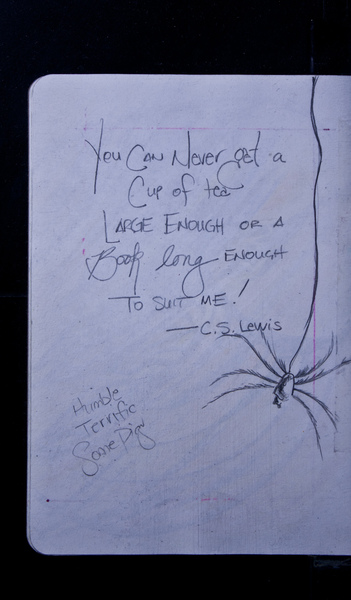 You Can Never get a
Cup of tea
LARGE ENOUGH OR A
Book long ENOUGH
TO SUIT ME!
—C.S. Lewis
Humble
Terrific
Some Pig